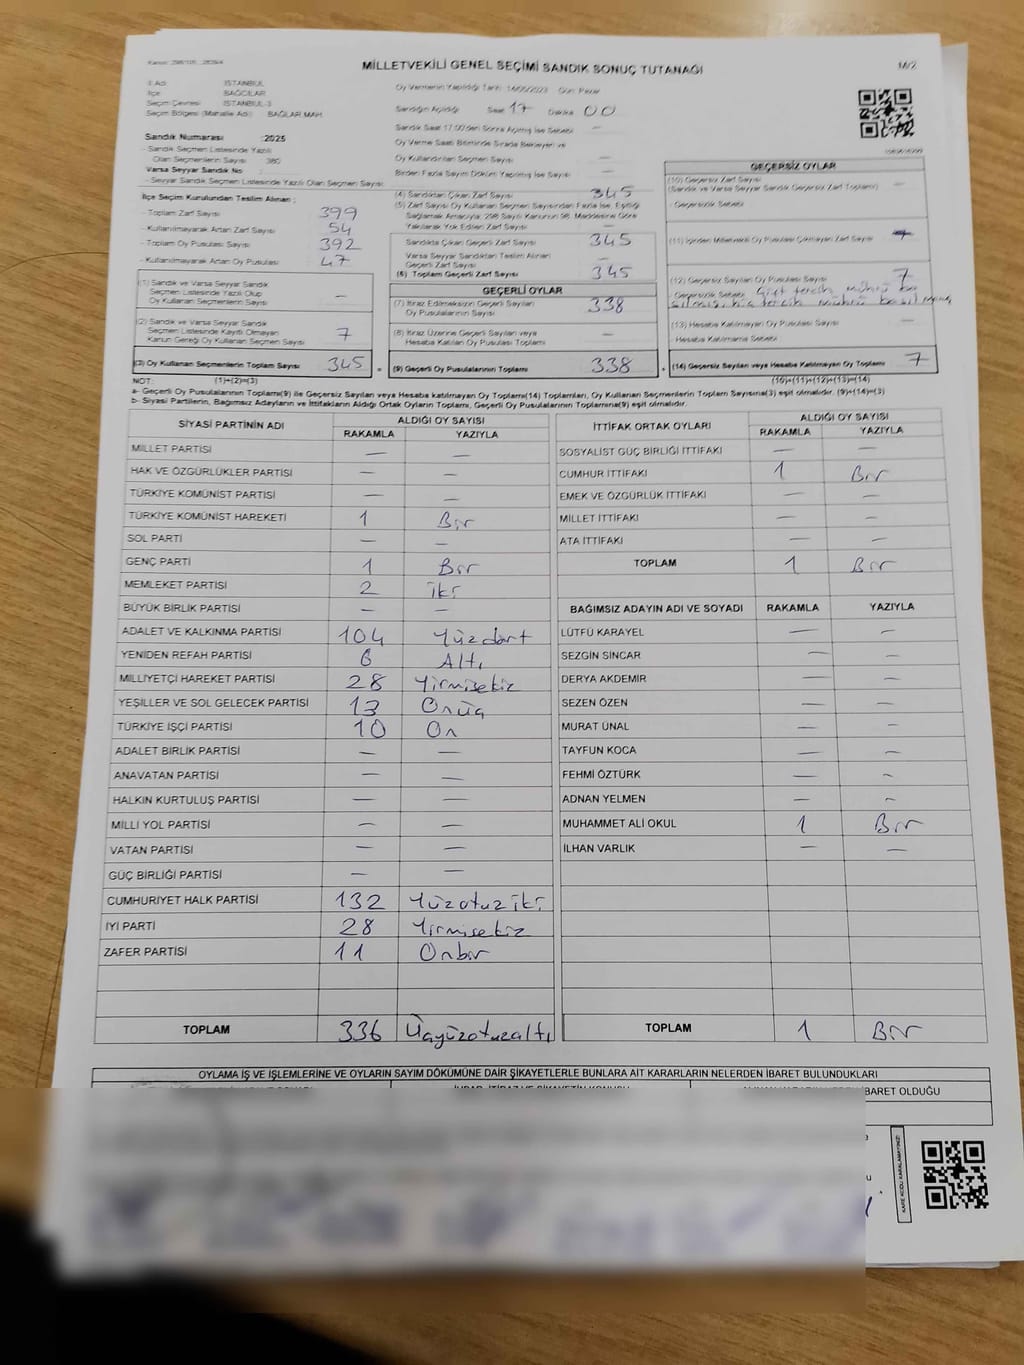 MİLLETVEKİLİ GENEL SEÇİMİ SANDIK SONUÇ TUTANAĞI
M/2
İl Adı İSTANBUL
İlçe BAĞCILAR
Seçim Çevresi İSTANBUL-3
Seçim Bölgesi (Mahalle Adı) BAĞLAR MAH.
Oy Vermenin Yapıldığı Tarih 14/05/2023 Gün: Pazar
Sandığın Açıldığı Saat 17 Dakika 00
Sandık Saat 17:00'den Sonra Açılmış İse Sebebi —
Oy Verme Saati Bitiminde Sırada Bekleyen ve
Oy Kullandırılan Seçmen Sayısı —
Birden Fazla Sayım Döküm Yapılmış İse Sayısı —
Sandık Numarası :2025
- Sandık Seçmen Listesinde Yazılı
Olan Seçmenlerin Sayısı : 380
Varsa Seyyar Sandık No :
- Seyyar Sandık Seçmen Listesinde Yazılı Olan Seçmen Sayısı:
İlçe Seçim Kurulundan Teslim Alınan ;
- Toplam Zarf Sayısı 399
- Kullanılmayarak Artan Zarf Sayısı 54
- Toplam Oy Pusulası Sayısı 392
- Kullanılmayarak Artan Oy Pusulası 47
(1) Sandık ve Varsa Seyyar Sandık
Seçmen Listesinde Yazılı Olup
Oy Kullanan Seçmenlerin Sayısı —
(2) Sandık ve Varsa Seyyar Sandık
Seçmen Listesinde Kayıtlı Olmayan
Kanun Gereği Oy Kullanan Seçmen Sayısı 7
(3) Oy Kullanan Seçmenlerin Toplam Sayısı 345
(4) Sandıktan Çıkan Zarf Sayısı 345
(5) Zarf Sayısı Oy Kullanan Seçmen Sayısından Fazla İse, Eşitliği
Sağlamak Amacıyla; 298 Sayılı Kanunun 98. Maddesine Göre
Yakılarak Yok Edilen Zarf Sayısı —
Sandıkta Çıkan Geçerli Zarf Sayısı 345
Varsa Seyyar Sandıktan Teslim Alınan
Geçerli Zarf Sayısı —
(6) Toplam Geçerli Zarf Sayısı 345
GEÇERLİ OYLAR
(7) İtiraz Edilmeksizin Geçerli Sayılan
Oy Pusulalarının Sayısı 338
(8) İtiraz Üzerine Geçerli Sayılan veya
Hesaba Katılan Oy Pusulası Toplamı —
(9) Geçerli Oy Pusulalarının Toplamı 338
GEÇERSİZ OYLAR
(10) Geçersiz Zarf Sayısı
(Sandık ve Varsa Seyyar Sandık Geçersiz Zarf Toplamı) —
- Geçersizlik Sebebi
(11) İçinden Milletvekili Oy Pusulası Çıkmayan Zarf Sayısı
(12) Geçersiz Sayılan Oy Pusulası Sayısı 7
- Geçersizlik Sebebi Çift tercih mührü ba
sılmış, hiç tercih mührü basılmamış
(13) Hesaba Katılmayan Oy Pusulası Sayısı —
- Hesaba Katılmama Sebebi
(14) Geçersiz Sayılan veya Hesaba Katılmayan Oy Toplamı 7
NOT: (1)+(2)=(3) (10)+(11)+(12)+(13)=(14)
a- Geçerli Oy Pusulalarının Toplamı(9) ile Geçersiz Sayılan veya Hesaba katılmayan Oy Toplamı(14) Toplamları, Oy Kullanan Seçmenlerin Toplam Sayısına(3) eşit olmalıdır. (9)+(14)=(3)
b- Siyasi Partilerin, Bağımsız Adayların ve İttifakların Aldığı Ortak Oyların Toplamı, Geçerli Oy Pusulalarının Toplamına(9) eşit olmalıdır.
SİYASİ PARTİNİN ADI ALDIĞI OY SAYISI
RAKAMLA YAZIYLA
MİLLET PARTİSİ — —
HAK VE ÖZGÜRLÜKLER PARTİSİ — —
TÜRKİYE KOMÜNİST PARTİSİ — —
TÜRKİYE KOMÜNİST HAREKETİ 1 Bir
SOL PARTİ — —
GENÇ PARTİ 1 Bir
MEMLEKET PARTİSİ 2 iki
BÜYÜK BİRLİK PARTİSİ — —
ADALET VE KALKINMA PARTİSİ 104 Yüzdört
YENİDEN REFAH PARTİSİ 6 Altı
MİLLİYETÇİ HAREKET PARTİSİ 28 Yirmisekiz
YEŞİLLER VE SOL GELECEK PARTİSİ 13 Onüç
TÜRKİYE İŞÇİ PARTİSİ 10 On
ADALET BİRLİK PARTİSİ — —
ANAVATAN PARTİSİ — —
HALKIN KURTULUŞ PARTİSİ — —
MİLLİ YOL PARTİSİ — —
VATAN PARTİSİ — —
GÜÇ BİRLİĞİ PARTİSİ — —
CUMHURİYET HALK PARTİSİ 132 Yüzotuziki
İYİ PARTİ 28 Yirmisekiz
ZAFER PARTİSİ 11 Onbir
TOPLAM 336 Üçyüzotuzaltı
İTTİFAK ORTAK OYLARI ALDIĞI OY SAYISI
RAKAMLA YAZIYLA
SOSYALİST GÜÇ BİRLİĞİ İTTİFAKI — —
CUMHUR İTTİFAKI 1 Bir
EMEK VE ÖZGÜRLÜK İTTİFAKI — —
MİLLET İTTİFAKI — —
ATA İTTİFAKI — —
TOPLAM 1 Bir
BAĞIMSIZ ADAYIN ADI VE SOYADI RAKAMLA YAZIYLA
LÜTFÜ KARAYEL — —
SEZGİN SİNCAR — —
DERYA AKDEMİR — —
SEZEN ÖZEN — —
MURAT ÜNAL — —
TAYFUN KOCA — —
FEHMİ ÖZTÜRK — —
ADNAN YELMEN — —
MUHAMMET ALİ OKUL 1 Bir
İLHAN VARLIK — —
TOPLAM 1 Bir
OYLAMA İŞ VE İŞLEMLERİNE VE OYLARIN SAYIM DÖKÜMÜNE DAİR ŞİKAYETLERLE BUNLARA AİT KARARLARIN NELERDEN İBARET BULUNDUKLARI
İBARET OLDUĞU
KARE KODU KARALAMAYINIZ!